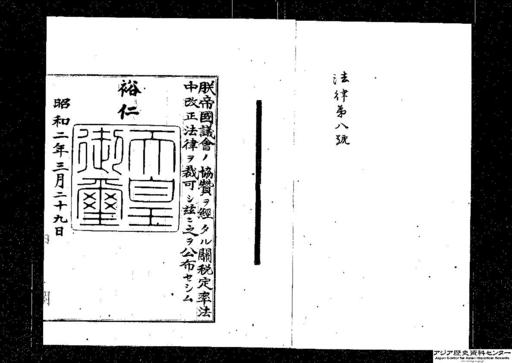 法律第八號
朕帝國議會ノ協贊ヲ經タル關税定率法
中改正法律ヲ裁可シ茲ニ之ヲ公布セシム
裕仁
天皇
御璽
昭和二年三月二十九日
アジア歴史資料センター
Japan Center for Asian Historical Records